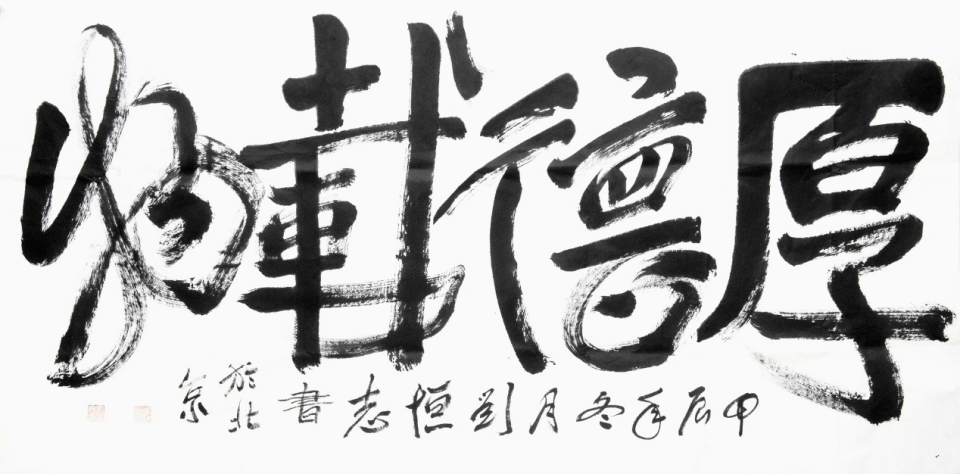 厚德載物
甲辰年冬月劉恒志書於北京